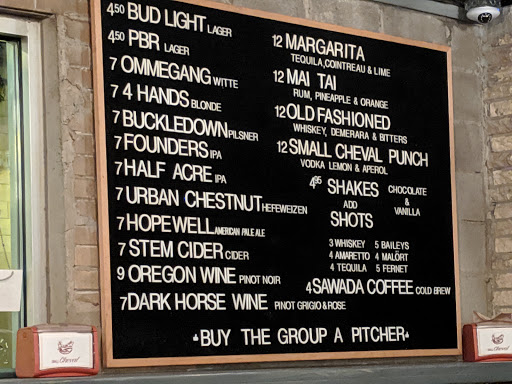 4.50 BUD LIGHT LAGER
4.50 PBR LAGER
7 OMMEGANG WITTE
7 4 HANDS BLONDE
7 BUCKLEDOWN PILSNER
7 FOUNDERS IPA
7 HALF ACRE IPA
7 URBAN CHESTNUT HEFEWEIZEN
7 HOPEWELL AMERICAN PALE ALE
7 STEM CIDER CIDER
9 OREGON WINE PINOT NOIR
7 DARK HORSE WINE PINOT GRIGIO & ROSE
12 MARGARITA
TEQUILA, COINTREAU & LIME
12 MAI TAI
RUM, PINEAPPLE & ORANGE
12 OLD FASHIONED
WHISKEY, DEMERARA & BITTERS
12 SMALL CHEVAL PUNCH
VODKA LEMON & APEROL
4.95 SHAKES CHOCOLATE & VANILLA
ADD
SHOTS
3 WHISKEY 5 BAILEYS
4 AMARETTO 4 MALÖRT
4 TEQUILA 5 FERNET
4 SAWADA COFFEE COLD BREW
BUY THE GROUP A PITCHER